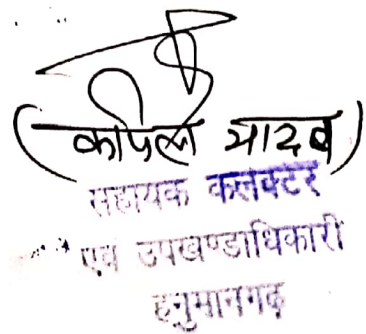 (कपिल यादव)
सहायक कलक्टर
एवं उपखण्डाधिकारी
हनुमानगढ़